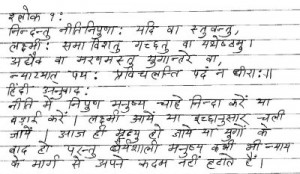 श्लोक १:
निन्दन्तु नीतिनिपुणा: यदि वा स्तुवन्तु,
लक्ष्मी: समाविशतु गच्छतु वा यथेष्ठम्।
अद्यैव वा मरणमस्तु युगान्तरे वा,
न्यायात्पथ: प्रविचलन्ति पदं न धीरा:॥
हिंदी अनुवाद:
नीति में निपुण मनुष्य चाहे निन्दा करें या
बड़ाई करें। लक्ष्मी आये या इच्छानुसार चली
जाये। आज ही मृत्यु हो जाये या युगों के
बाद हो परन्तु धैर्यशाली मनुष्य कभी भी न्याय
के मार्ग से अपने कदम नहीं हटाते हैं।